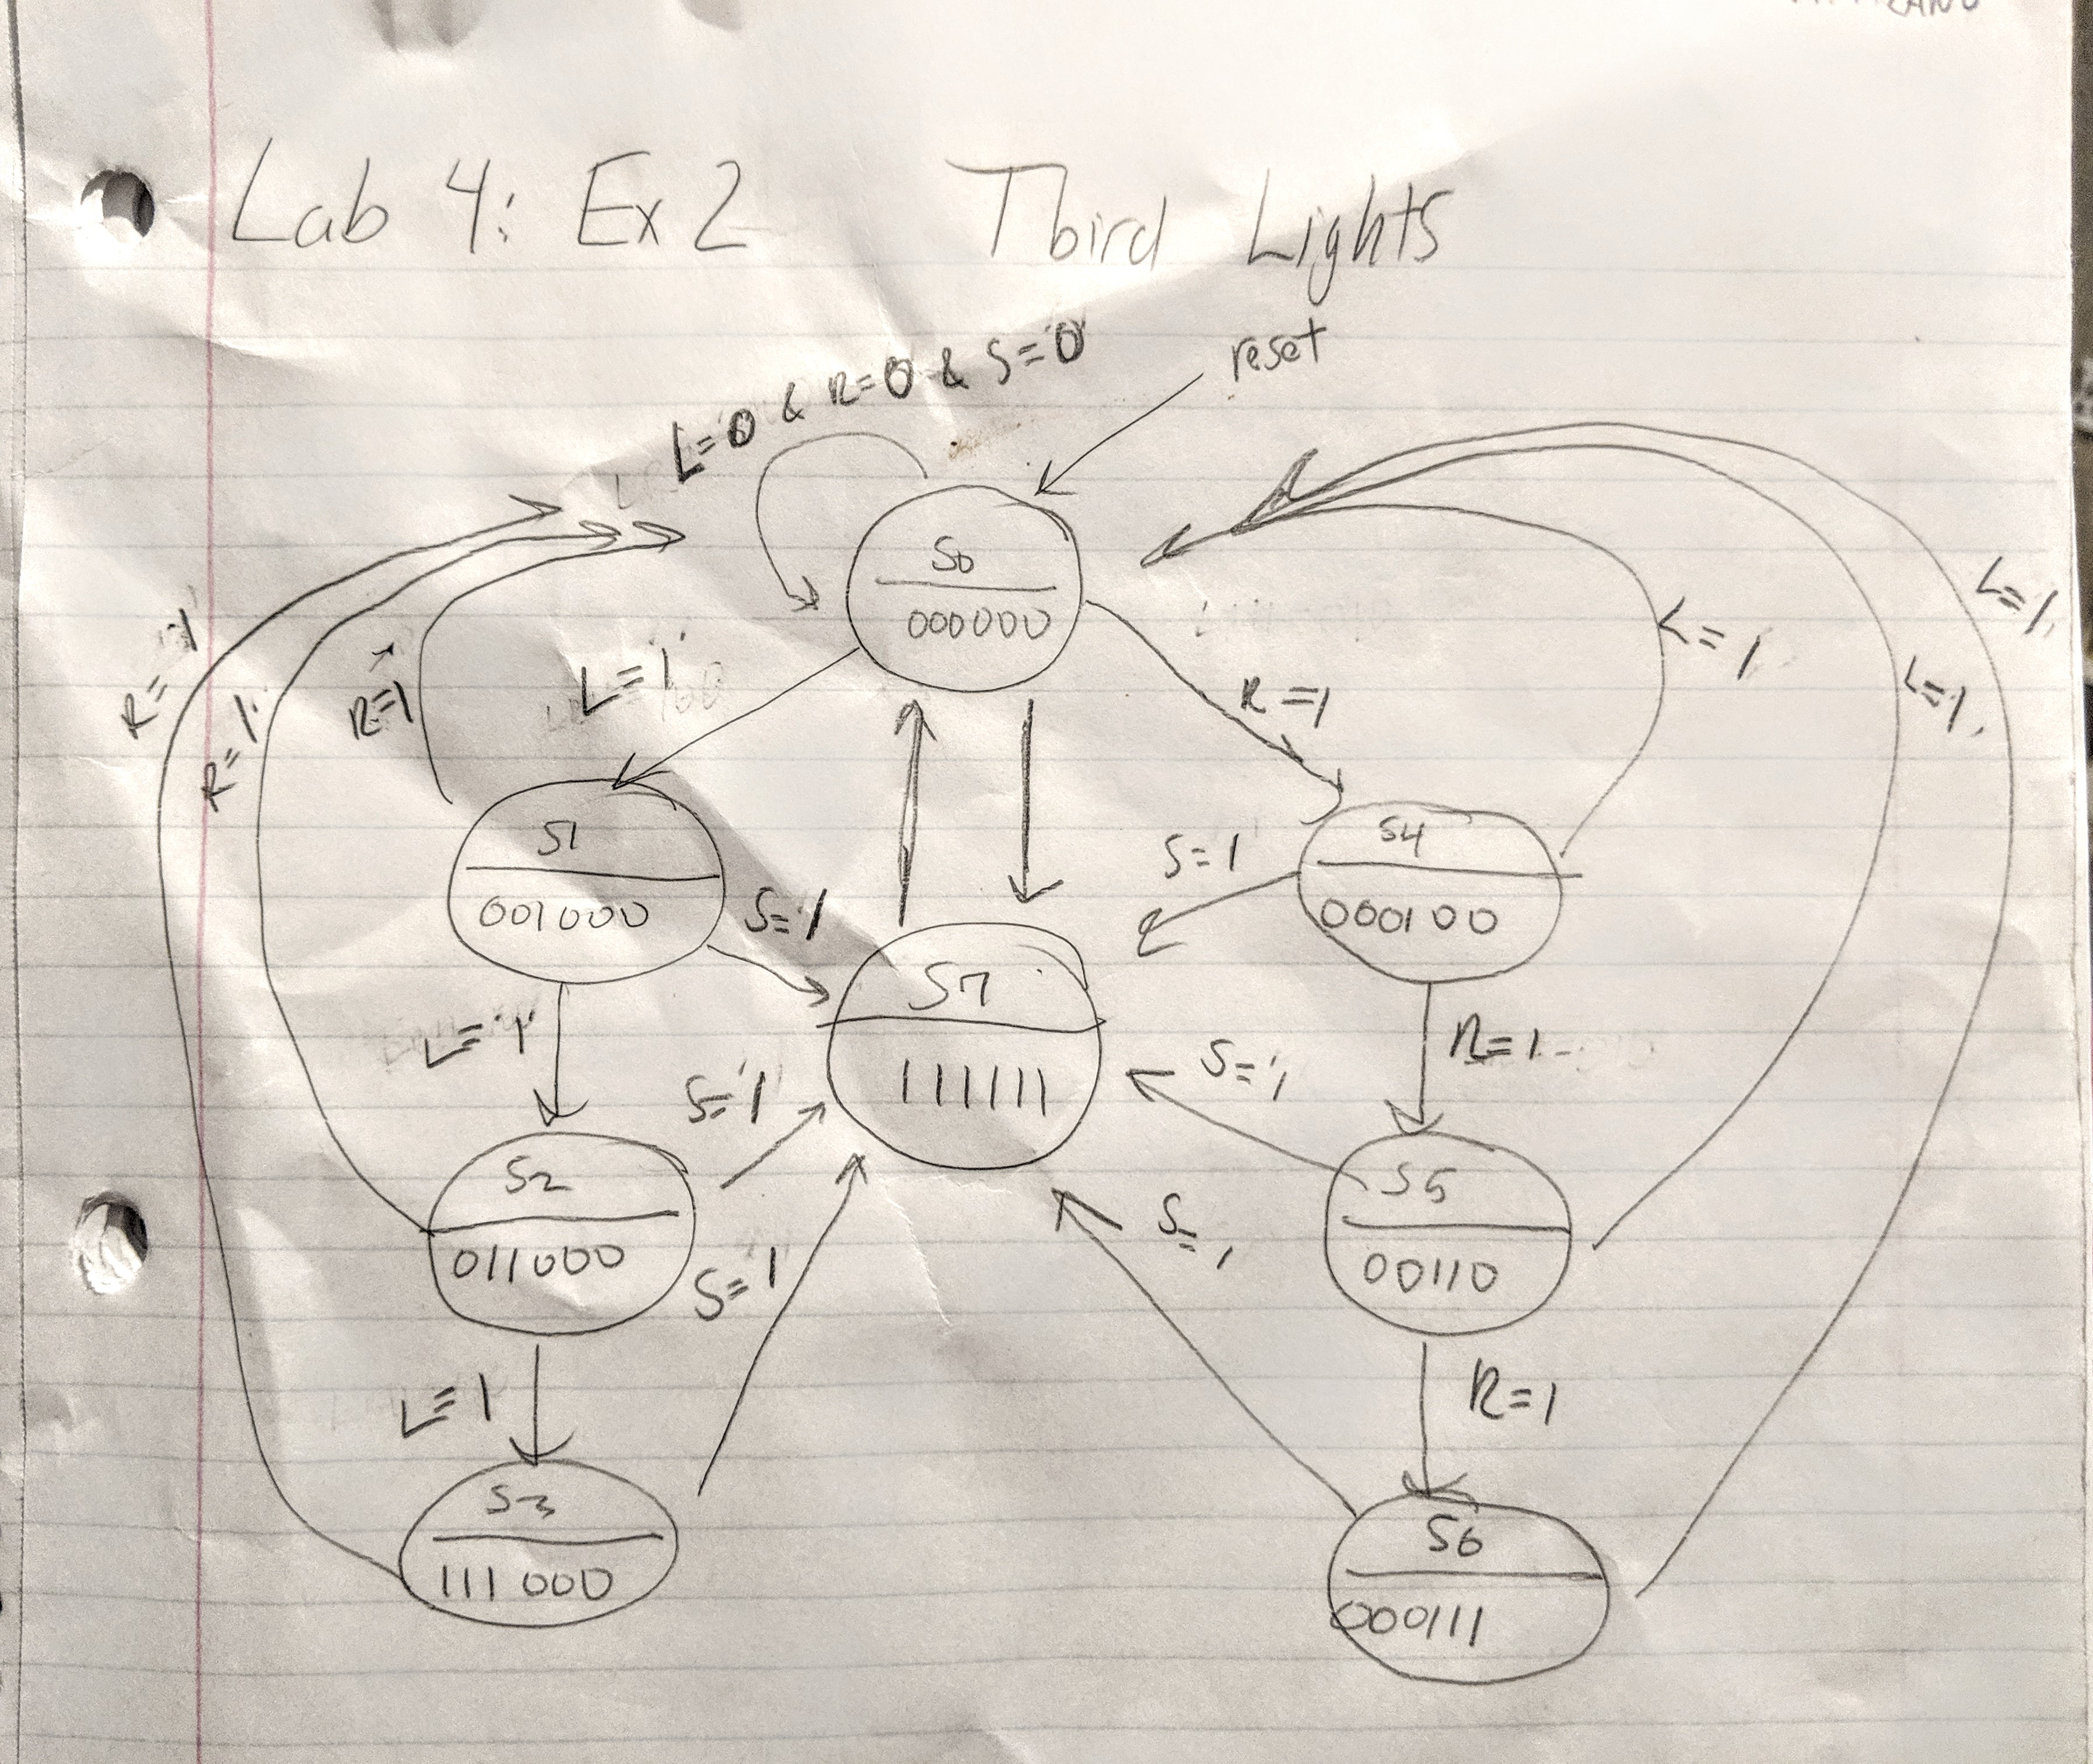 Lab 4: Ex 2 Tbird Lights
reset
L=0 & R=0 & S=0
S0
000000
L=1
R=1
R=1
R=1
R=1
L=1
L=1
L=1
S1
001000
S=1
S=1
S4
000100
S7
111111
L=1
R=1
S=1
S=1
S2
011000
S5
00110
S=1
S=1
L=1
R=1
S3
111000
S6
000111